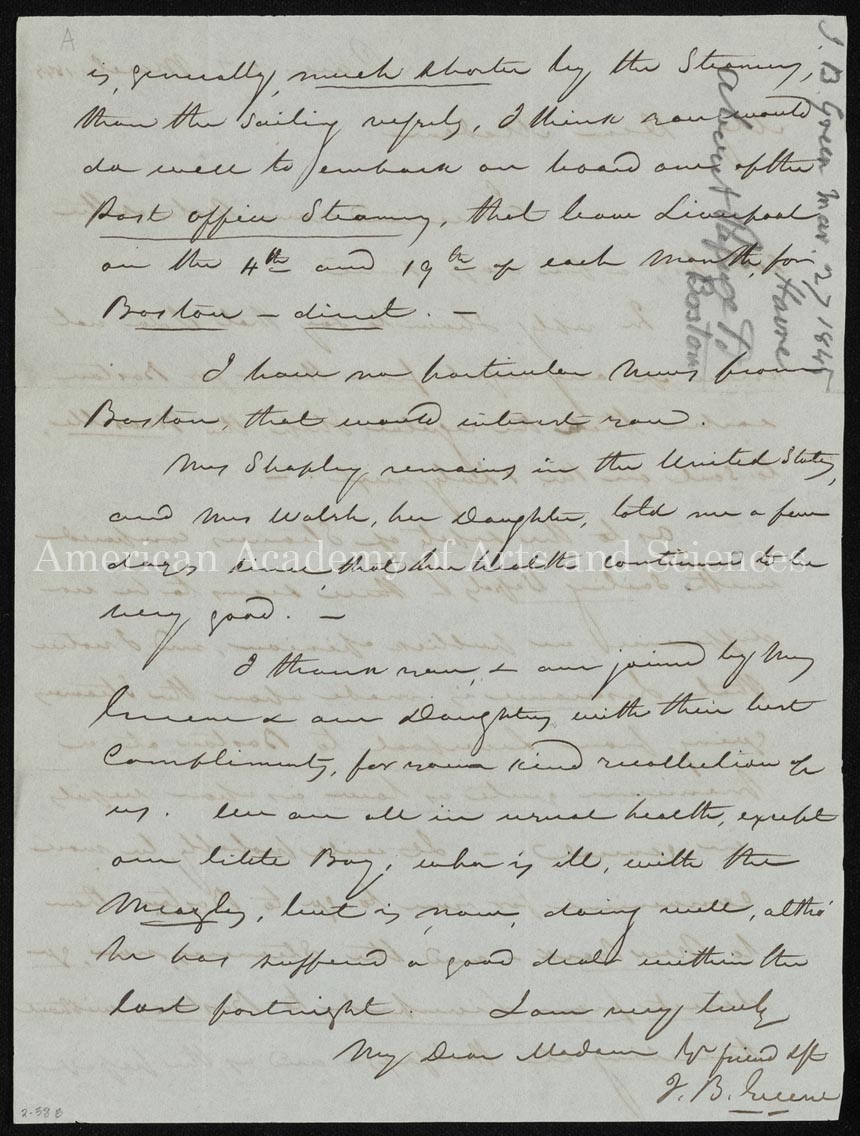 A
is, generally, much shorter by the Steamers,
than the sailing vessels, I think you would
do well to embark on board one of the
Post office Steamers, that leave Liverpool
on the 4th and 19th of each Month, for
Boston – direct. –
I have no particular News from
Boston, that would interest you.
Mrs Shapley remains in the United States,
and Mrs Walsh, her Daughter, told me a few
days since, that her health continues to be
very good. –
I thank you, & am joined by Mrs
Greene & our Daughters, with their best
Compliments, for your kind recollection of
us. We are all in usual health, except
our little Boy, who is ill, with the
Measles, but is, now, doing well, altho'
he has suffered a good deal within the
last fortnight. I am very truly
My Dear Madam Yr friend &
J. B. Greene
J. B. Green Mar. 27 1845
Havre
about passage to
Boston
American Academy of Arts and Sciences
2-58 B